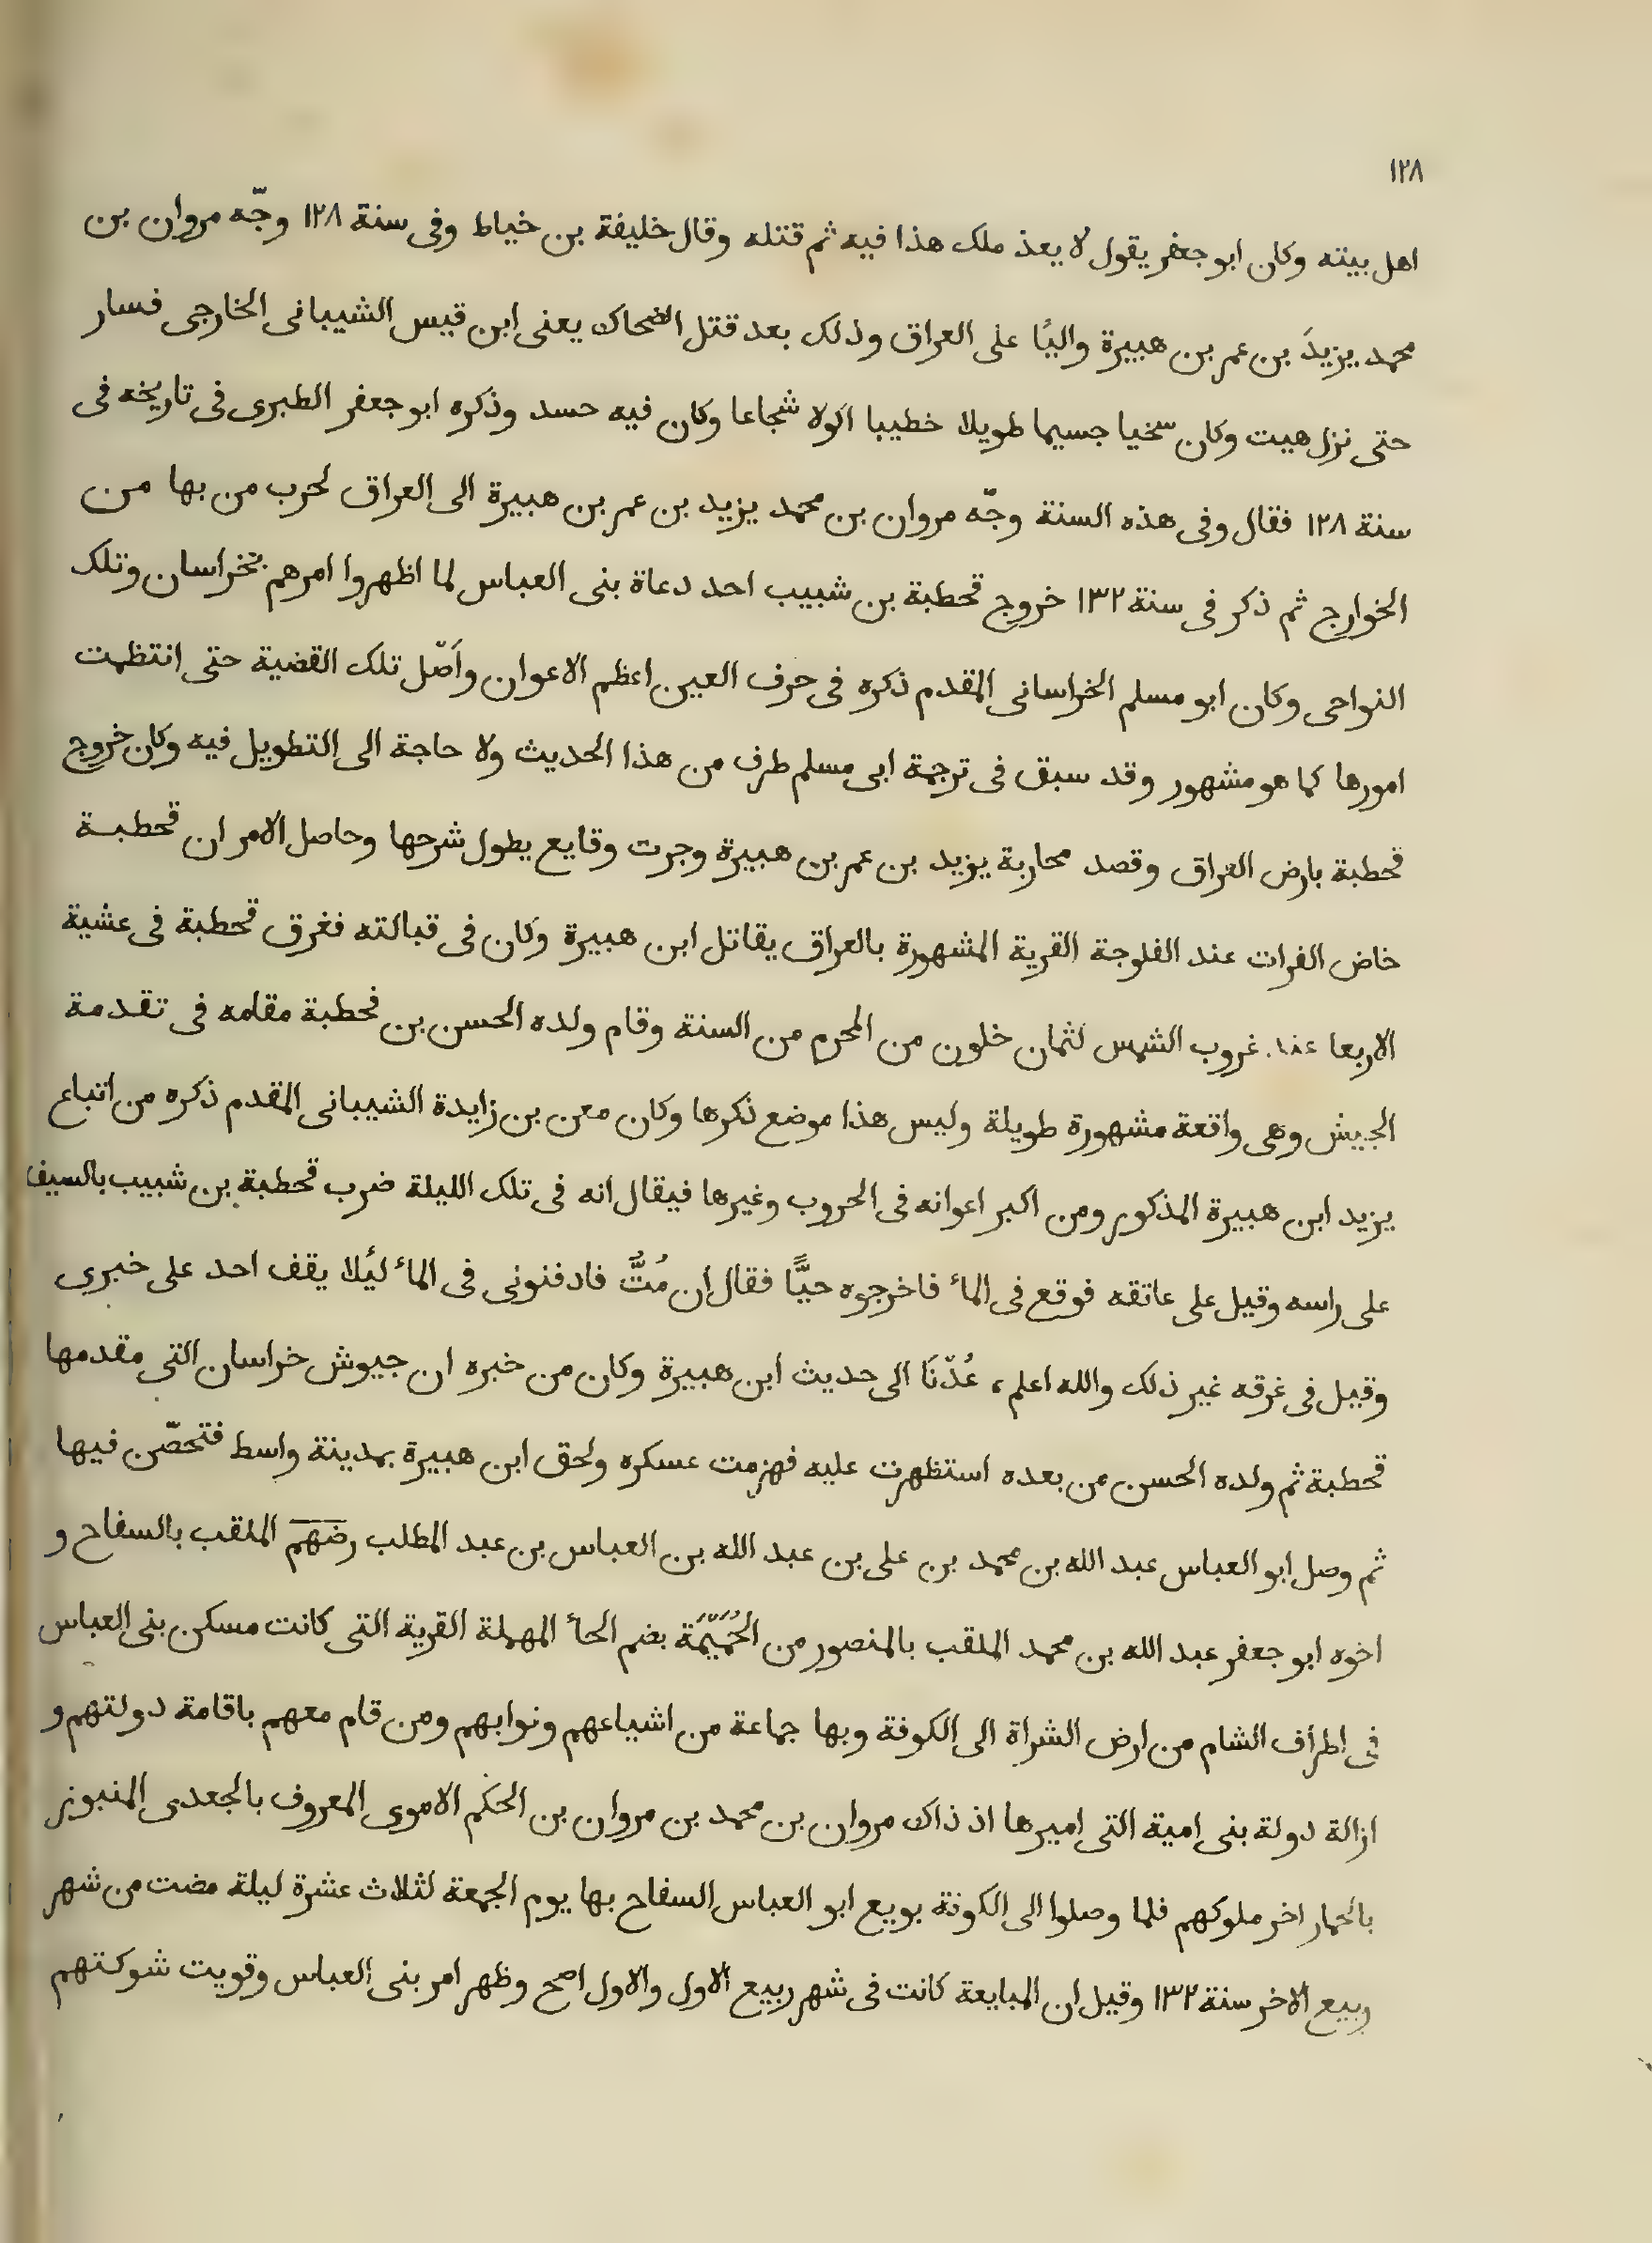 ١٢٨
اهل بيته وكان ابو جعفر يقول لا يعذ ملك هذا فيه ثم قتله وقال خليفة بن خياط وفى سنة ١٢٨ وجّه مروان بن
محمد يزيدَ بن عمر بن هبيرة واليًا على العراق وذلك بعد قتل الضحاك يعنى ابن قيس الشيبانى الخارجى فسار
حتى نزل هيت وكان سخيا جسيما طويلا خطيبا اكولا شجاعا وكان فيه حسد وذكره ابو جعفر الطبرى فى تاريخه فى
سنة ١٢٨ فقال وفى هذه السنة وجّه مروان بن محمد يزيد بن عمر بن هبيرة الى العراق لحرب من بها من
الخوارج ثم ذكر فى سنة ١٣٢ خروج قحطبة بن شبيب احد دعاة بنى العباس لما اظهروا امرهم بخراسان وتلك
النواحى وكان ابو مسلم الخراسانى المقدم ذكره فى حرف العين اعظم الاعوان واَصّل تلك القضية حتى انتظمت
امورها كما هو مشهور وقد سبق فى ترجمة ابى مسلم طرف من هذا الحديث ولا حاجة الى التطويل فيه وكان خروج
قحطبة بارض العراق وقصد محاربة يزيد بن عمر بن هبيرة وجرت وقايع يطول شرحها وحاصل الامر ان قحطبة
خاض الفرات عند الفلوجة القرية المشهورة بالعراق يقاتل ابن هبيرة وكان فى قبالته فغرق قحطبة فى عشية
الاربعا عند غروب الشمس لثمان خلون من المحرم من السنة وقام ولده الحسن بن قحطبة مقامه فى تقدمة
الجيش وهى واقعة مشهورة طويلة وليس هذا موضع ذكرها وكان معن بن زايدة الشيبانى المقدم ذكره من اتباع
يزيد ابن هبيرة المذكور ومن اكبر اعوانه فى الحروب وغيرها فيقال انه فى تلك الليلة ضرب قحطبة بن شبيب بالسيف
على راسه وقيل على عاتقه فوقع فى المأ فاخرجوه حيًّا فقال ان مُتُّ فادفنونى فى المأ ليُلا يقف احد على خبرى
وقيل فى غرقه غير ذلك والله اعلم، عُدْنَا الى حديث ابن هبيرة وكان من خبره ان جيوش خراسان التى مقدمها
قحطبة ثم ولده الحسن من بعده استظهرت عليه فهزمت عسكره ولحق ابن هبيرة بمدينة واسط فتحصّن فيها
ثم وصل ابو العباس عبد الله بن محمد بن على بن عبد الله بن العباس بن عبد المطلب رضهم الملقب بالسفاح و
اخوه ابو جعفر عبد الله بن محمد الملقب بالمنصور من الحُمَيّمَة بضم الحأ المهملة القرية التى كانت مسكن بنى العباس
فى اطراف الشام من ارض الشراة الى الكوفة وبها جماعة من اشياعهم ونوابهم ومن قام معهم باقامة دولتهم و
ازالة دولة بنى امية التى اميرها اذ ذاك مروان بن محمد بن مروان بن الحكم الاموى المعروف بالجعدى المنبوز
بالحمار اخر ملوكهم فلما وصلوا الى الكوفة بويع ابو العباس السفاح بها يوم الجمعة لثلاث عشرة ليلة مضت من شهر
ربيع الاخر سنة ١٣٢ وقيل ان المبايعة كانت فى شهر ربيع الاول والاول اصح وظهر امر بنى العباس وقويت شوكتهم